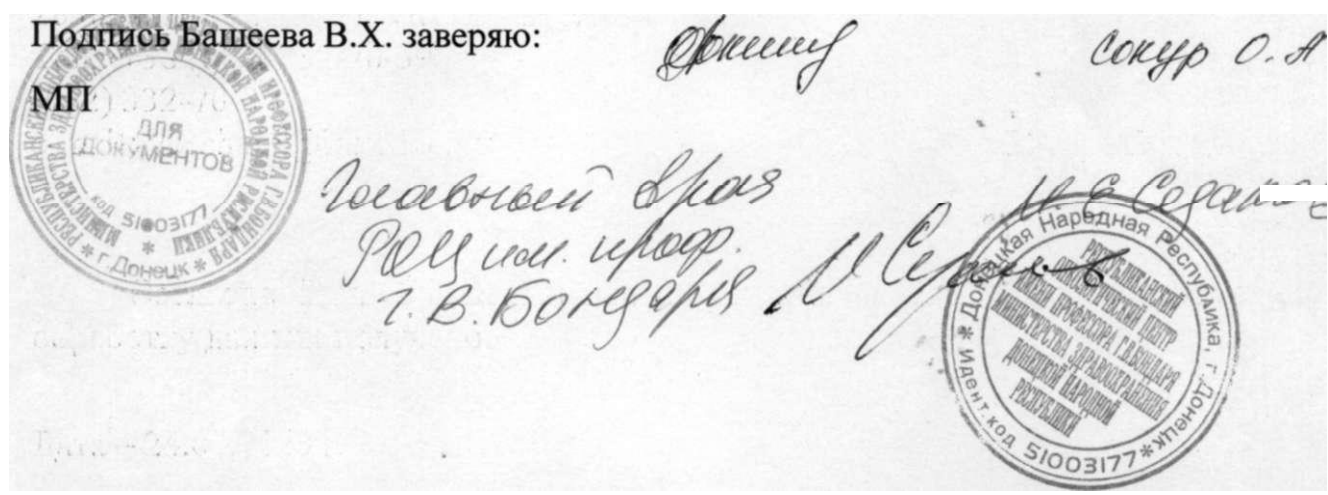 Подпись Башеева В.Х. заверяю:
Сокур О. А
МП
ДЛЯ
ДОКУМЕНТОВ
код 51003177
* г. Донецк *
Главный врач
РОЦ им. проф.
Г. В. Бондаря
И Е Седаков
Донецкая Народная Республика, г. Донецк
* Идент. код 51003177 *
РЕСПУБЛИКАНСКИЙ
ОНКОЛОГИЧЕСКИЙ ЦЕНТР
ИМЕНИ ПРОФЕССОРА Г.В.БОНДАРЯ
МИНИСТЕРСТВА ЗДРАВООХРАНЕНИЯ
ДОНЕЦКОЙ НАРОДНОЙ
РЕСПУБЛИКИ